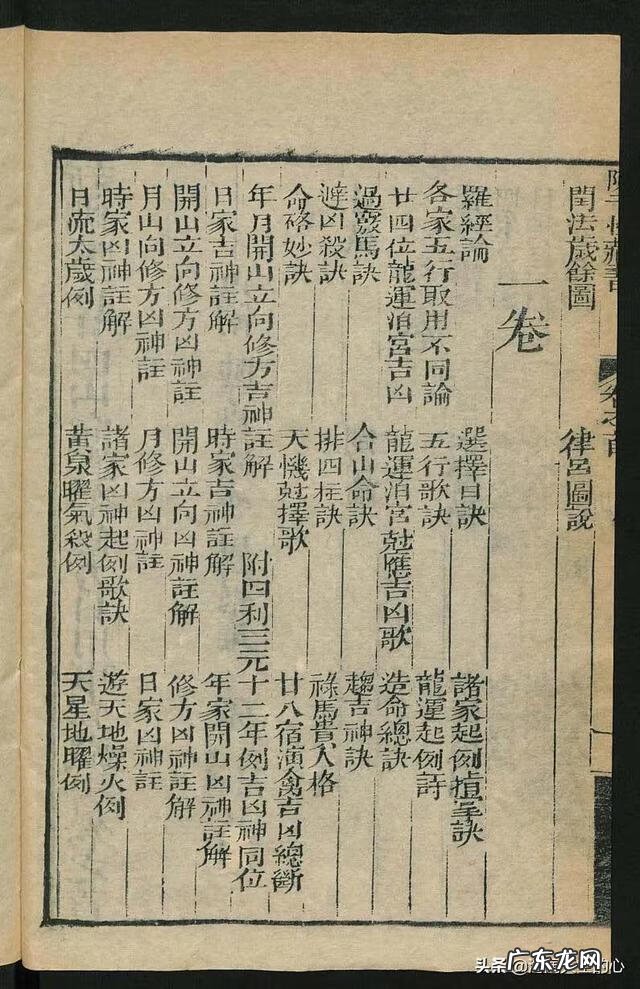 閏法歲餘圖 律呂圖說
一卷
羅經論 選擇日訣 諸家起例掌訣
各家五行取用不同論 五行歌訣 龍運起例詩
廿四位龍運泊宮吉凶 龍運泊宮尅應吉凶歌 造命總訣
馬訣 合山命訣 趨吉神訣
避凶殺訣 排四柱訣 祿馬貴人格
命硌妙訣 天機尅擇歌 廿八宿演禽吉凶總斷
年月開山立向修方吉神註解 附四利三元十二年例吉凶神同位
日家吉神註解 時家吉神註解 年家開山凶神註解
開山立向修方凶神註 開山立向凶神註解 修方凶神註解
月山向修方凶神註 月修方凶神註 日家凶神註
時家凶神註解 諸家凶神起例歌訣 遊天地燥火例
日流太歲例 黃泉曜氣殺例 天星地曜例
头条 心
广东龙网